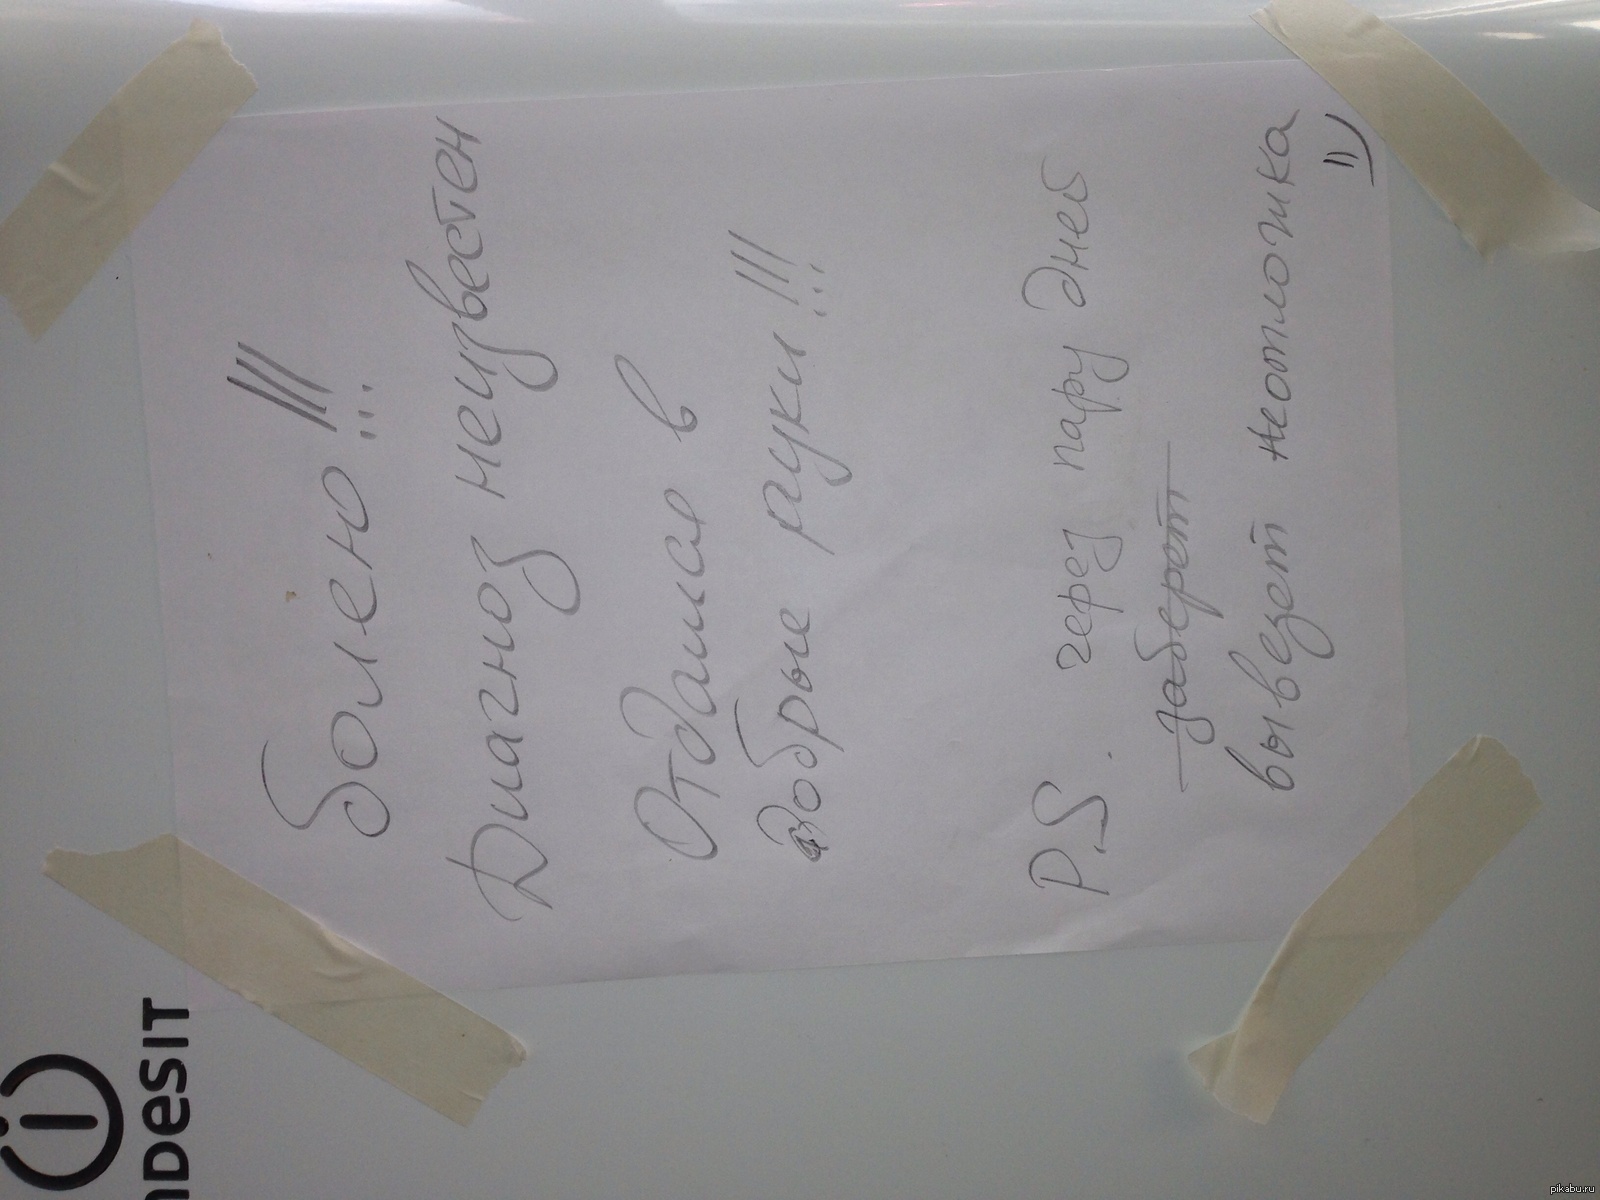 болею!!!
Диагноз неизвестен
Отдамся в
добрые руки!!!
P.S. через пару дней
заберет
вывезет неотложка
=)
INDESIT
pikabu.ru